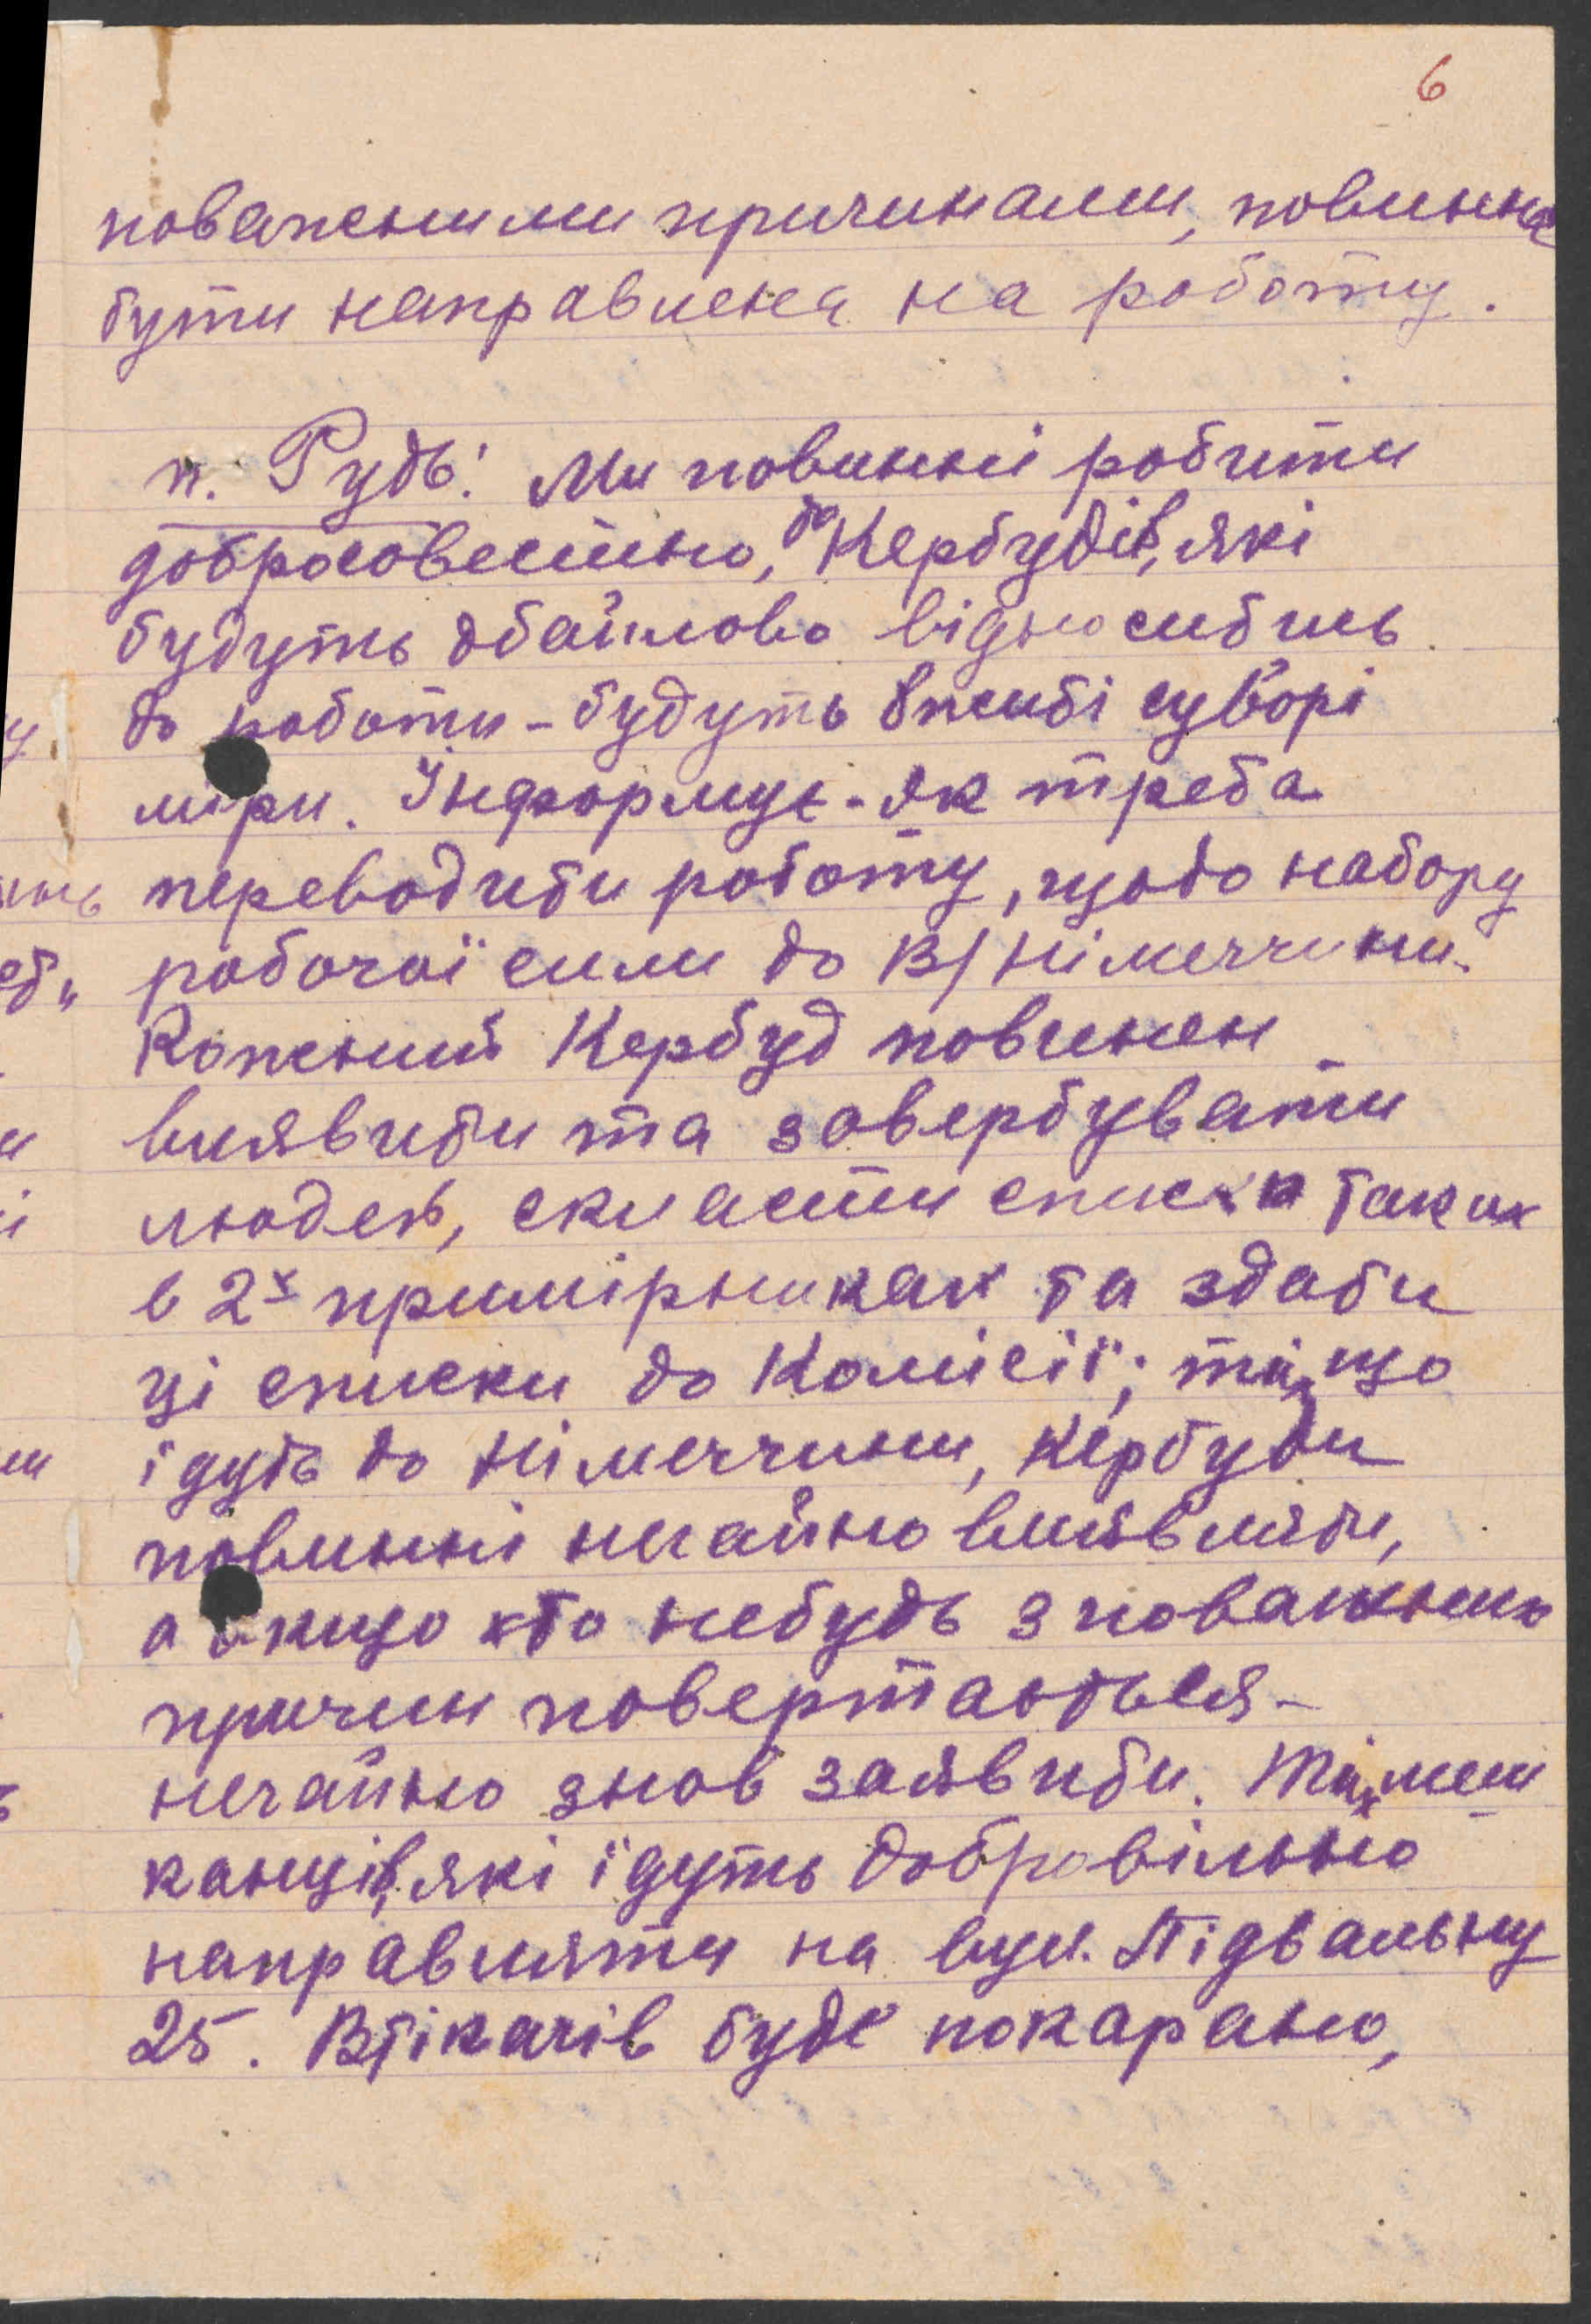 6
поважними причинами, повинна
бути направлена на роботу.
п. Рудь: Ми повинні робити
добросовестно, до Кербудів, які
будуть дбайлово відноситись
до роботи - будуть вжиті суворі
міри. Інформує - як треба
переводити роботу, щодо набору
робочої сили до В/Німеччини.
Кожний Кербуд повинен
виявити та завербувати
людей, скласти списки таких
в 2х примірниках та здати
ці списки до Комісії; тих, що
їдуть до Німеччини, Кербуди
повинні негайно виявляти,
а якщо хто небудь з поважних
причин повертаються -
негайно знов заявити. Тих меш
канців, які їдуть добровільно
направляти на вул. Підвальну
25. Втікачів буде покарано,